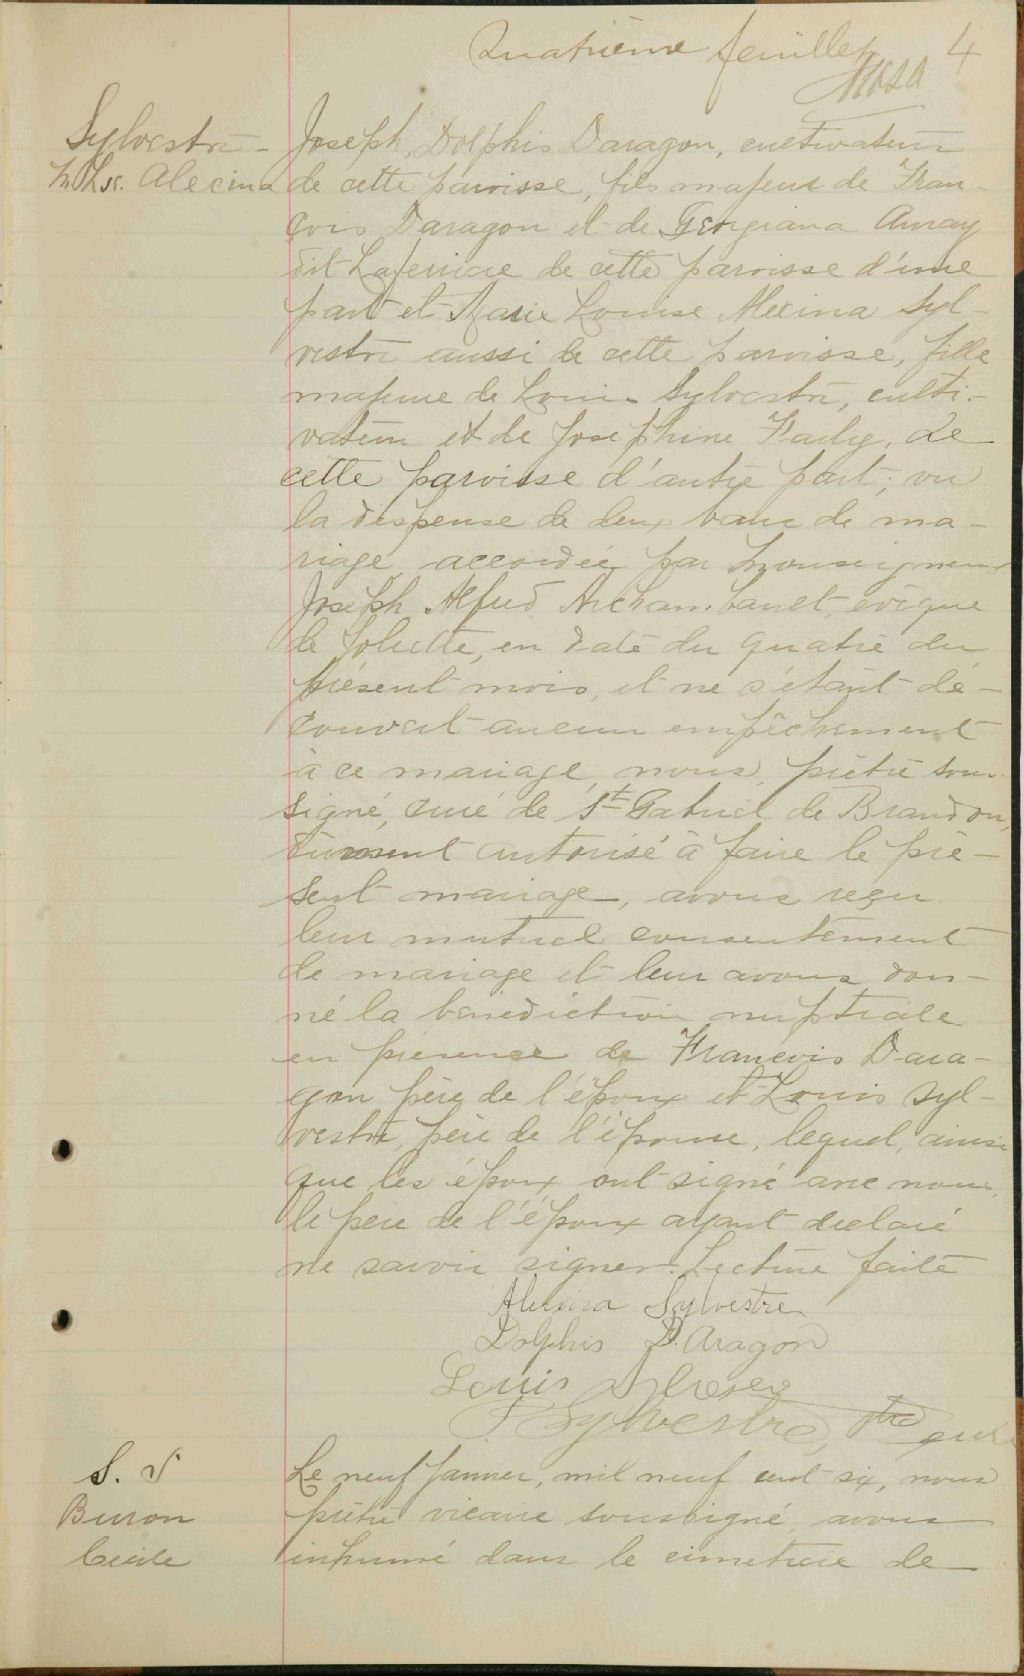 Quatrième feuillet 4
Sylvestre -
M. Ls. Alexina
Joseph, Dolphis Daragon, cultivateur
de cette paroisse, fils majeur de Fran-
çois Daragon et de Georgiana Auray
dit Laferriere de cette paroisse d'une
part et Marie Louise Alexina Syl-
vestre aussi de cette paroisse, fille
majeure de Louis Sylvestre, culti-
vateur et de Josephine Farly, de
cette paroisse d'autre part; vu
la dispense de deux bans de ma-
riage accordée par Monseigneur
Joseph Alfred Archambault, evêque
de Joliette, en date du quatre du
présent mois, et ne s'étant dé-
couvert aucun empêchement
à ce mariage, nous, prêtre sous-
signé, curé de St Gabriel de Brandon,
dûment autorisé à faire le pré-
sent mariage, avons reçu
leur mutuel consentement
de mariage et leur avons don-
né la bénédiction nuptiale
en présence de François Dara-
gon père de l'époux et Louis Syl-
vestre, père de l'épouse, lequel, ainsi
que les époux ont signé avec nous,
le père de l'époux ayant declaré
ne savoir signer. Lecture faite
Alexina Sylvestre
Dolphis D. Aragon
Louis
Sylvestre, Ptre curé
S. 5
Buron
Cécile
Le neuf Janvier, mil neuf cent six, nous
prêtre vicaire soussigné, avons
inhumé dans le cimetière de